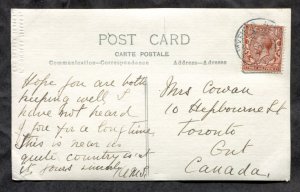 POST CARD
CARTE POSTALE
Communication—Correspondence
Address—Adresse
Hope you are both
keeping well I
have not heard
from you for a long time
This is near us
quite country isn't
it, yours
Mrs Cowan
10 Hepbourne St
Toronto
Ont
Canada.